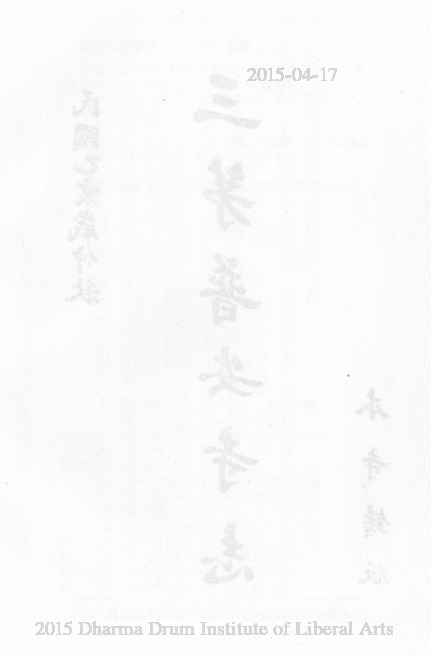 2015-04-17
民國乙亥歲仲秋
三茅普安寺志
本寺鑄版
2015 Dharma Drum Institute of Liberal Arts